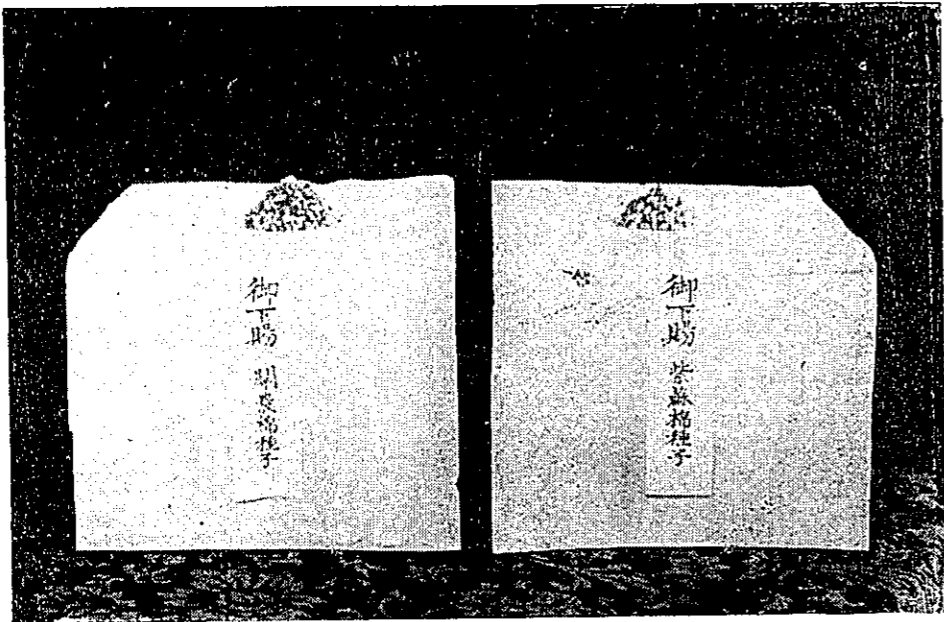 御下賜 紫蘇棉種子
御下賜 棉種子